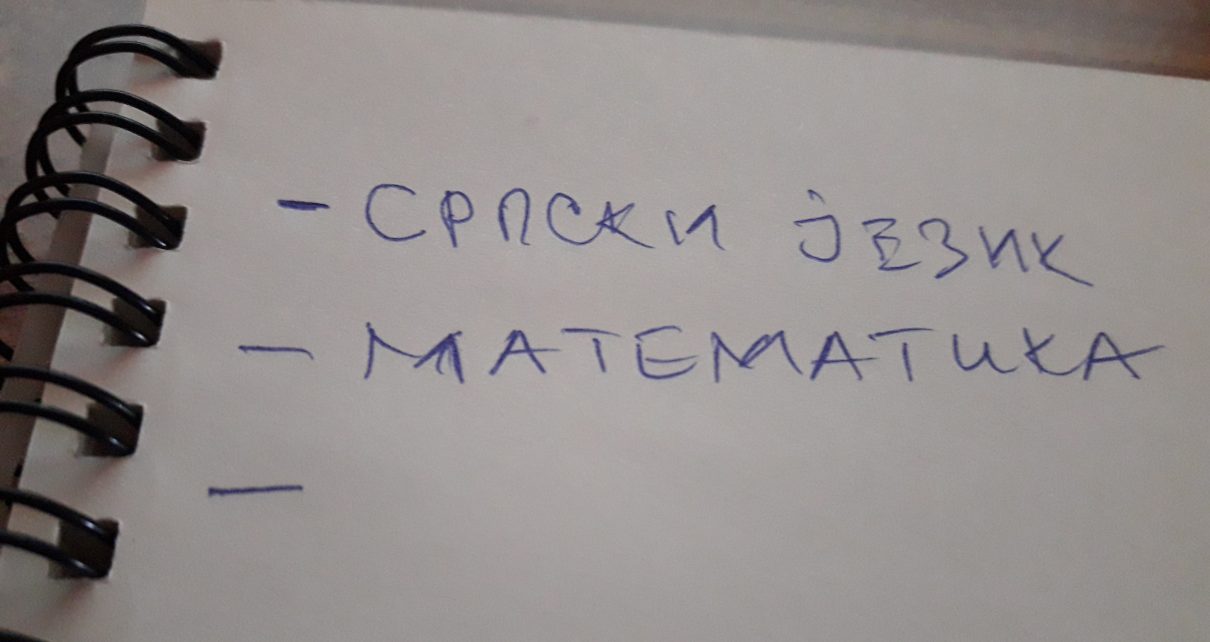 - СРПСКИ ЈЕЗИК
- МАТЕМАТИКА
-